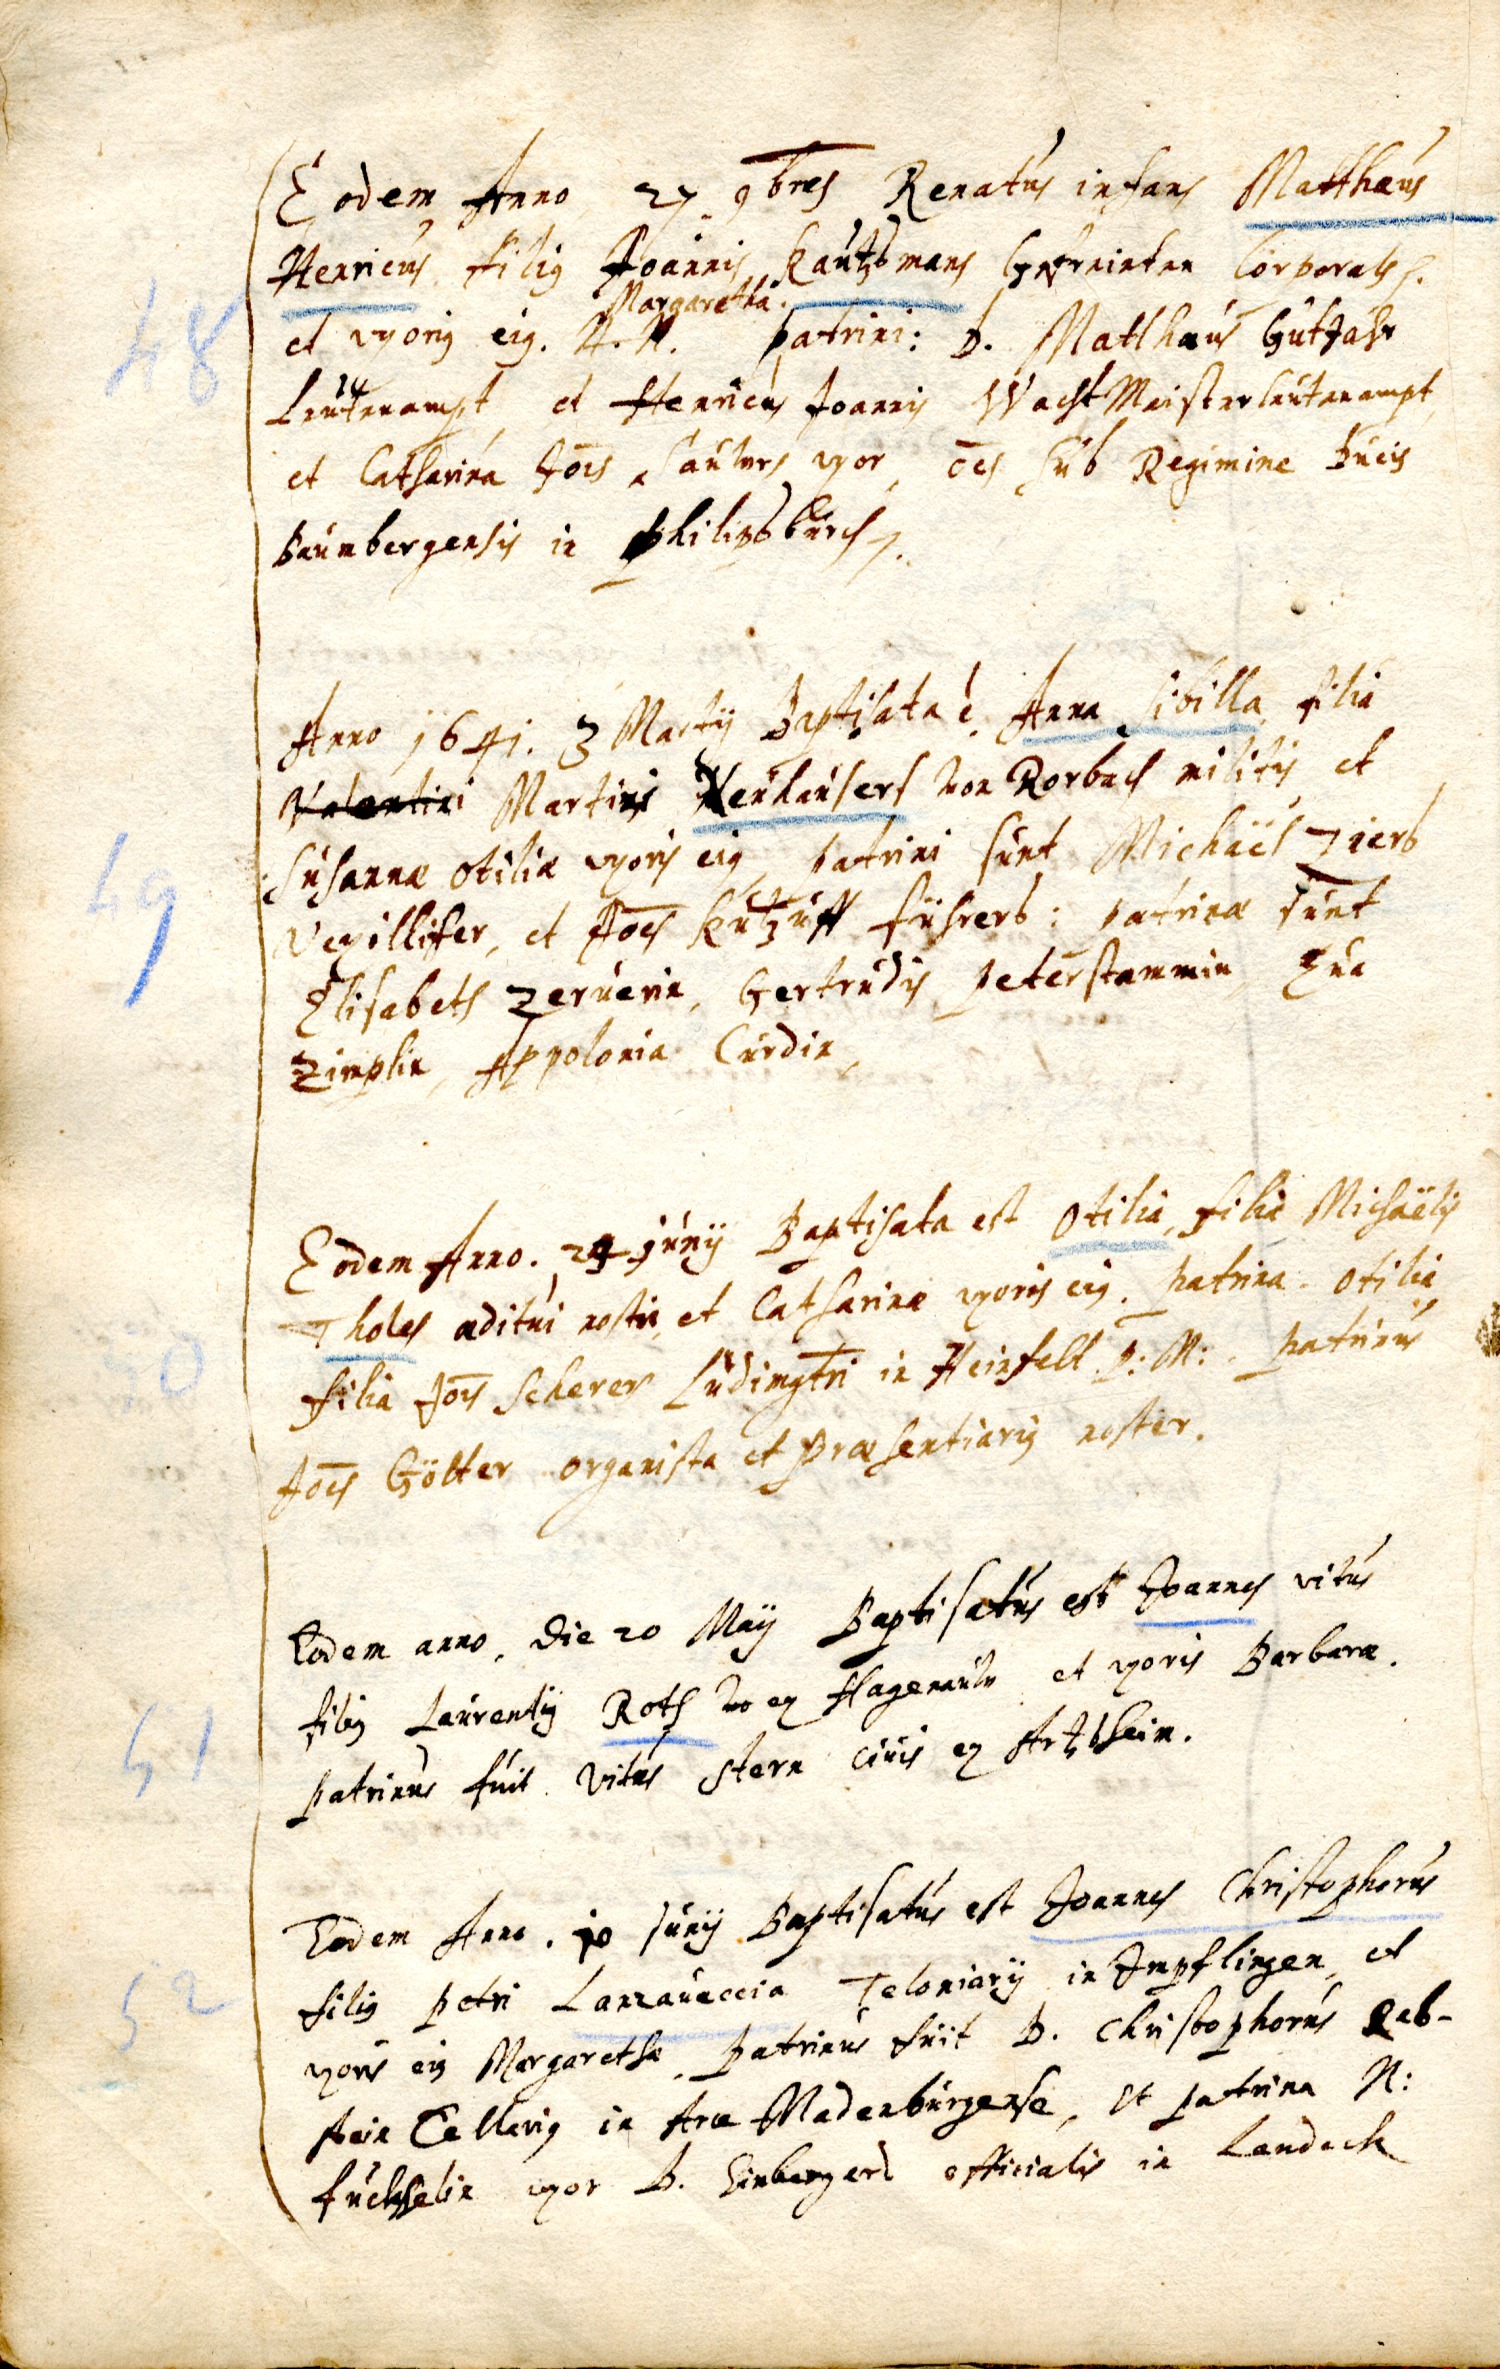 Eodem Anno 27. 9bres Renatus infans Matthæus
Henricus filius Joannis Kautzmans Gefreinten Corporals.
Margaretha.
et uxoris eius. N. N. patrini: D. Matthæus Gutjahr
Leutenampt, et Henricus Joannis WachtMeisterleutenampt,
et Catharina Jōis Sauters uxor, ōes sub Regimine Ducis
Baumbergensis in Philipsburch.
48
Anno 1641. 3 Martij Baptisata ē Anna Sibilla, filia
Valentini Martini Neuhausers von Rorbach militis, et
Susannæ Otiliæ uxoris eius, patrini sunt Michaël Zierb
Vexillifer, et Jōes Kutzuff führerb: patrinæ sunt
Elisabeth Zeruerin, Gertrudis Peterstammin, Eua
Zimplin, Appolonia Curdin,
49
Eodem Anno. 24 Junij Baptisata est Otilia, filia Michaëlis
Tholes æditui nostri, et Catharinæ uxoris eius. patrina Otilia
filia Jōis Scherer Ludimgtri in Heinfelt p: M: patrinus
Jōes Gölter organista et Præsentiarius noster.
50
Eodem anno, die 20 Maij Baptisatus est Joannes vitus
filius Laurentij Roth ex Hagenauw et uxoris Barbaræ.
patrinus fuit Vitus Stern ciuis ex Artzheim.
51
Eodem Anno. 10 Junij Baptisatus est Joannes Christophorus
filius petri Lanzaueccia Teloniarij in Impflingen, et
uxoris eius Margarethæ, Patrinus fuit D. Christophorus Reb-
stein Cellerius in Arce Madenburgense, et patrina N:
fuchsselin uxor D. Einbergers officialis in Landeck
52